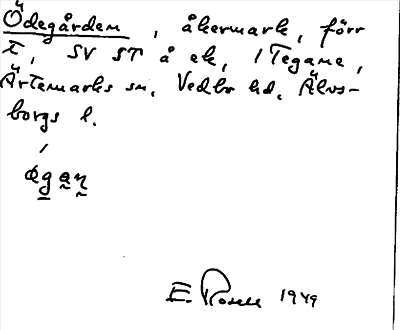 Ödegården, åkermark, förr
t, SV ST å ek, i Tegane,
Ärtemarks sn, Vedbo hd, Älvs-
borgs l.
E. Rosell 1949